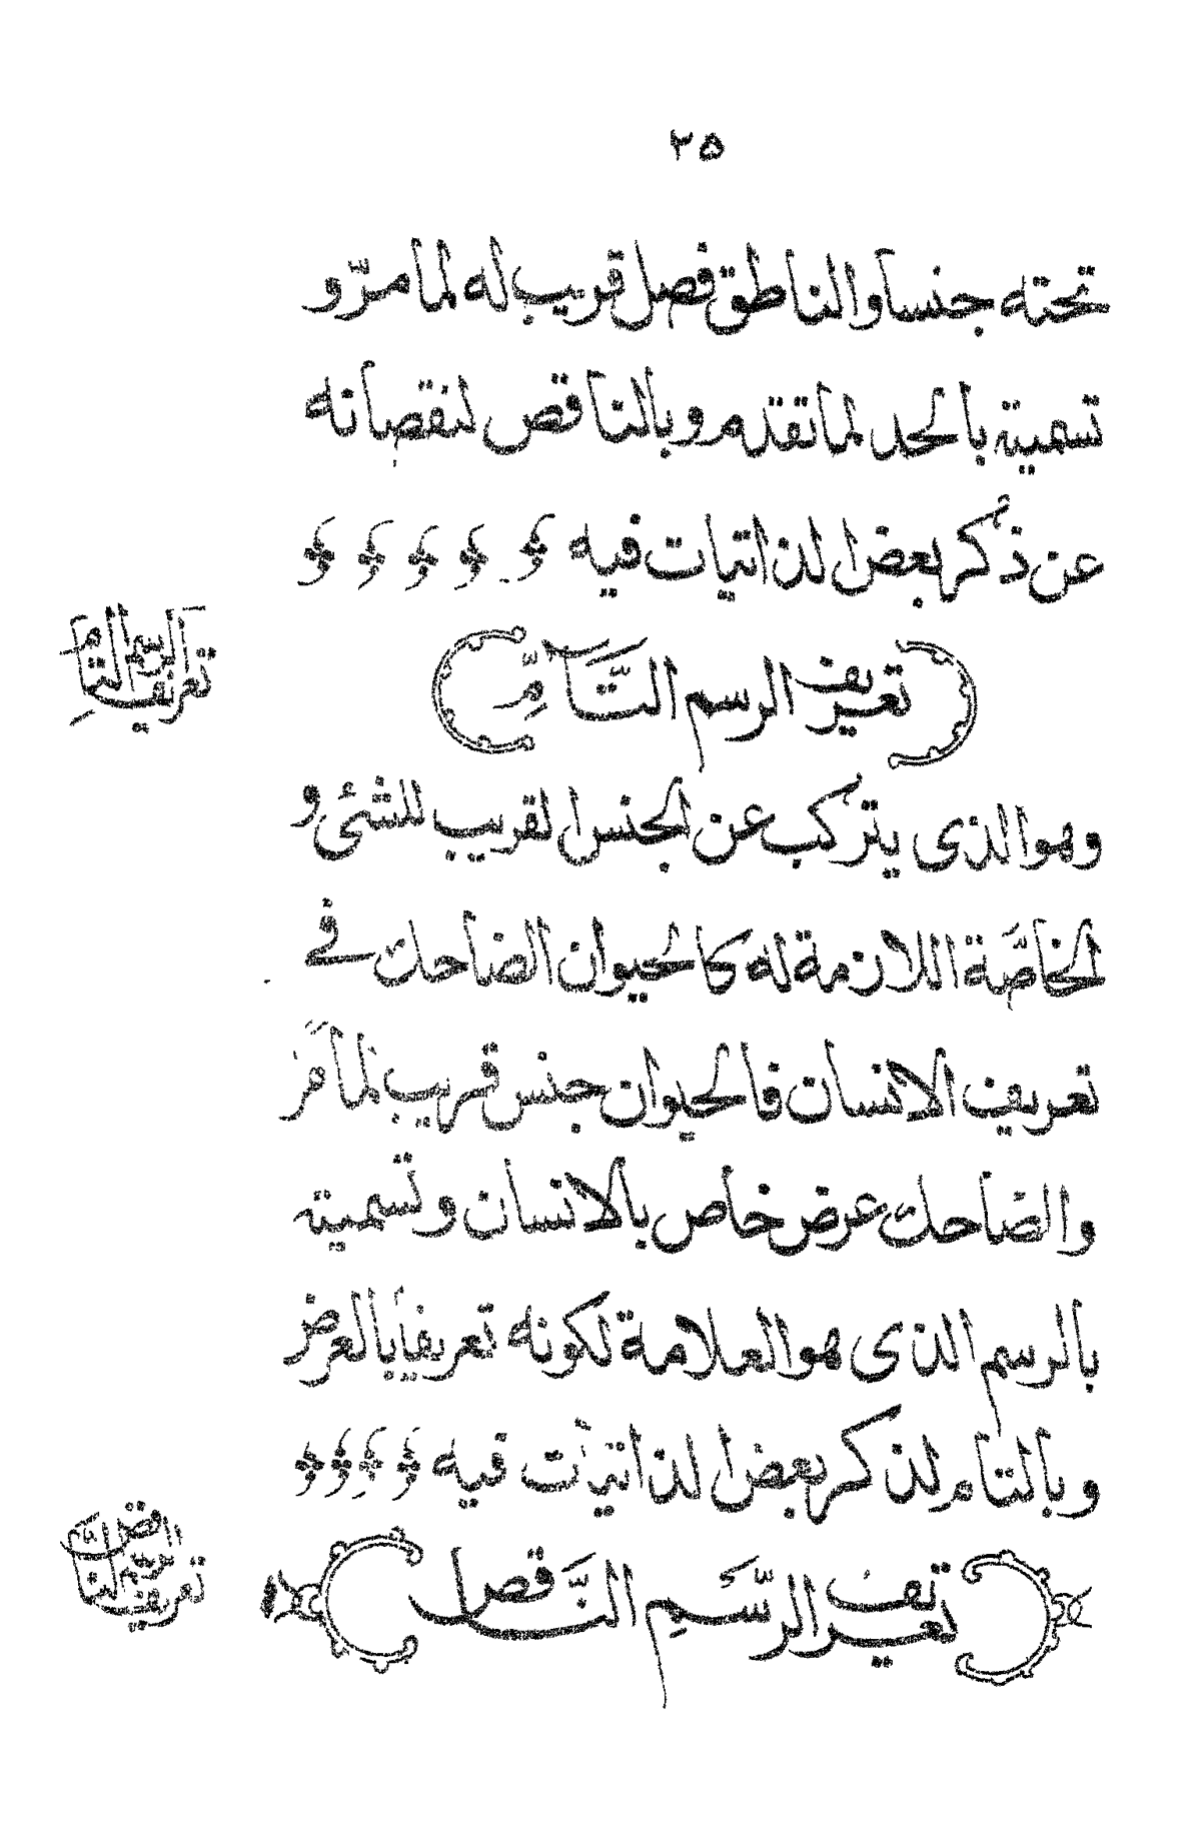 ٢٥
تحته جنساً والناطق فصل قريب له لما مرّ و
تسمية بالحد لما تقدم وبالناقص لنقصانه
عن ذكر بعض الذاتيات فيه
تعريف الرسم التام
تعريف الرسم التَّامِّ
وهو الذى يتركب عن الجنس القريب للشئى و
الخاصَّة اللازمة له كالحيوان الضاحك فے
تعريف الانسان فالحيوان جنس قريب لما مر
والضاحك عرض خاص بالانسان وتسمية
بالرسم الذى هو العلامة لكونه تعريفاً بالعرض
وبالتام لذكر بعض الذاتيات فيه
تعريف الرسم الناقص
تعريف الرَّسَمِ النَّاقص